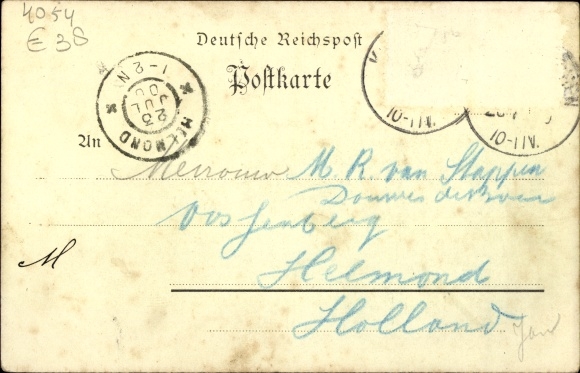 4054
€ 38
Deutsche Reichspost
Postkarte
HELMOND
1-2 N
23
JUL
00
10-11 N.
10-11 N.
An
Mevrouw M. R. van Stappen
Douwes
Vossenberg
M
Helmond
Holland